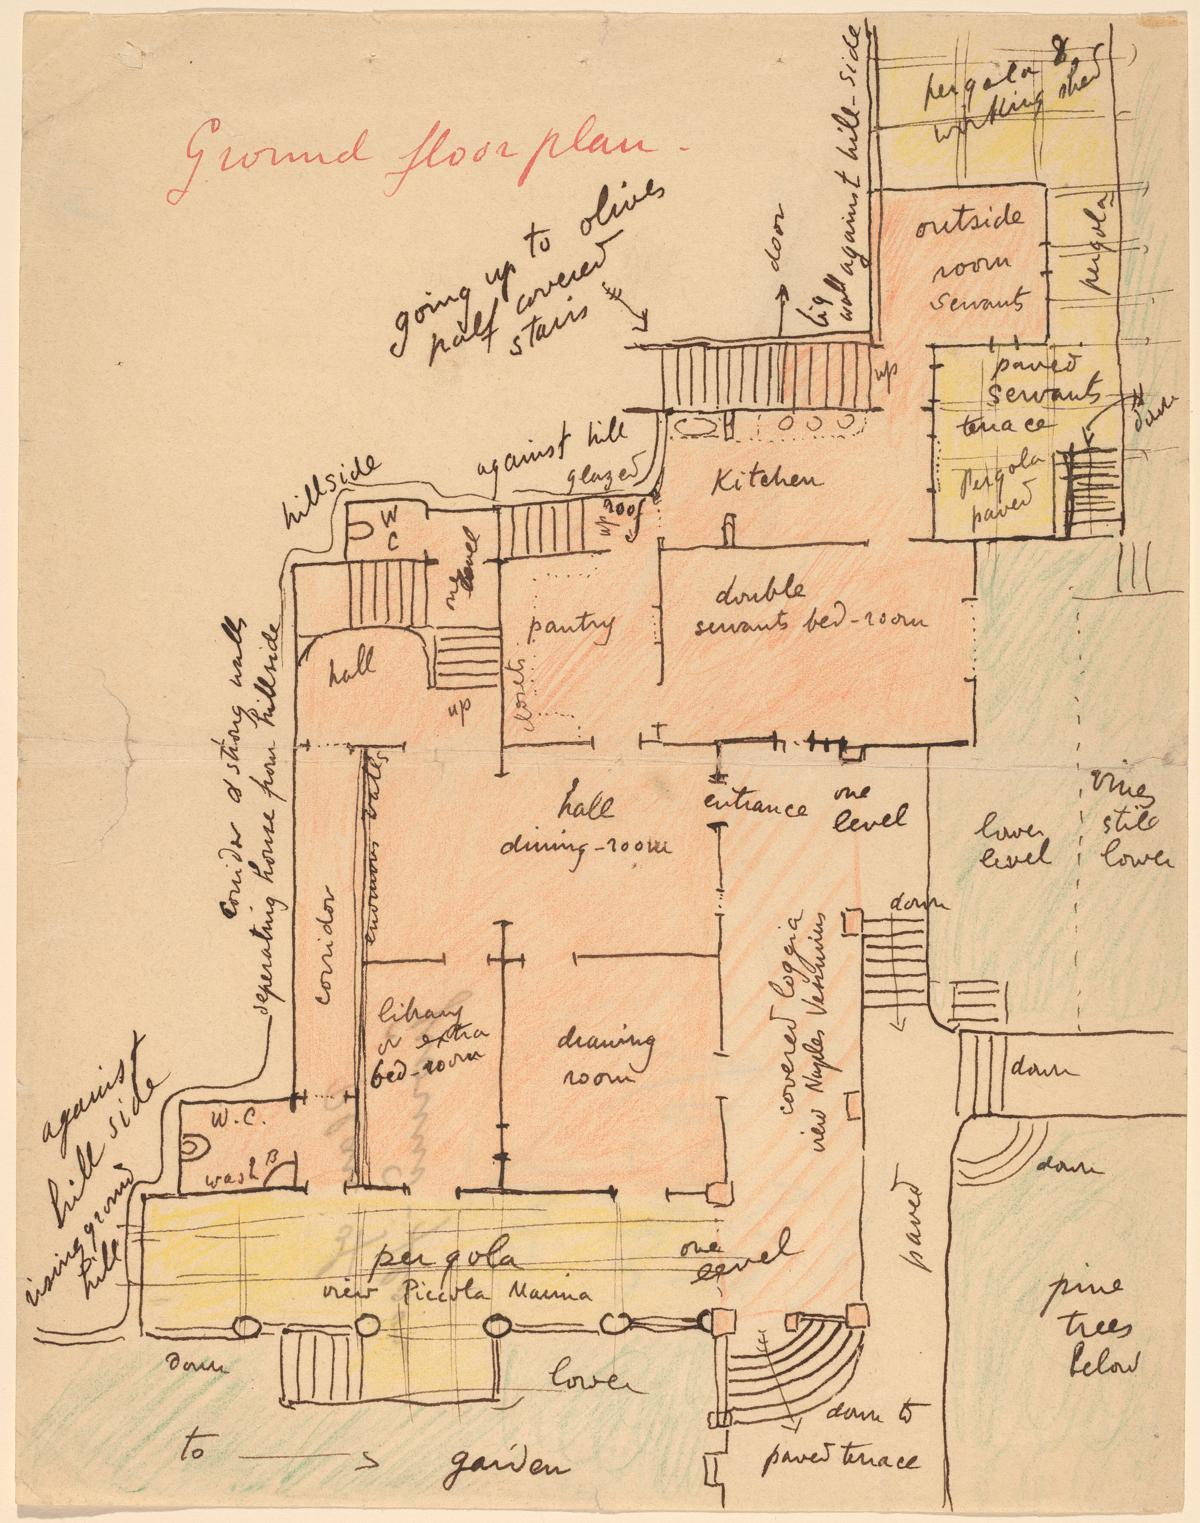 Ground floor plan.
pergola &
working shed
big
wall against hill-side
door
going up to olives
half covered
stairs
outside
room
servants
pergola
up
paved
servants
terrace
Pergola
paved
down
against hill
glazed
roof
up
hillside
W
C
one
level
Kitchen
double
servants bed-room
pantry
closets
hall
up
corridor & strong walls
seperating house from hillside
corridor
enormous vates
hall
dining-room
entrance
one
level
lower
level
vines
still
lower
down
covered loggia
view Naples Vesuvius
library
or extra
bed-room
drawing
room
down
down
against
hill side
rising ground
hill
W.C.
wash B
pergola
view Piccola Marina
one
level
paved
pine
trees
below
down
lower
down to
paved terrace
to
garden